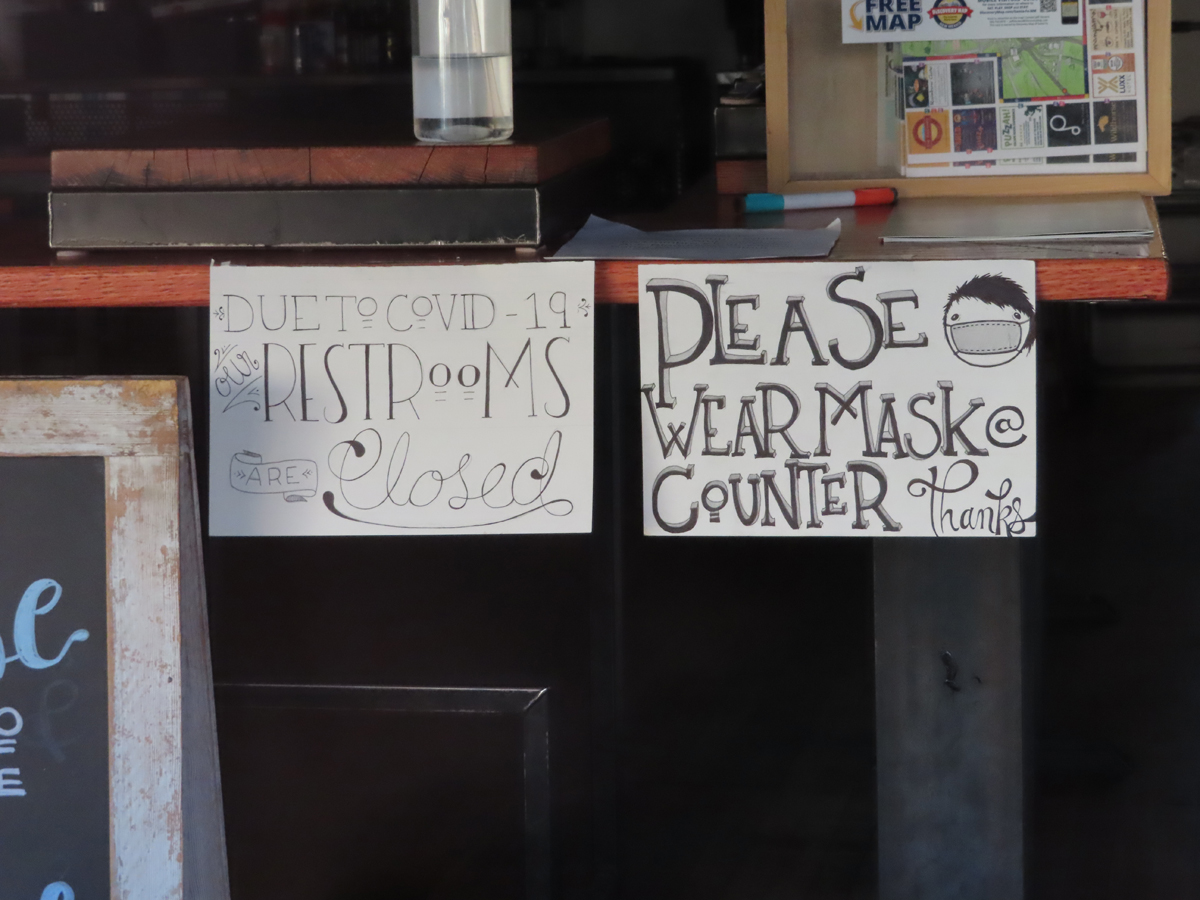 FREE
MAP
DUE TO COVID-19
our
RESTROOMS
ARE Closed
PLEASE
WEAR MASK @
COUNTER Thanks